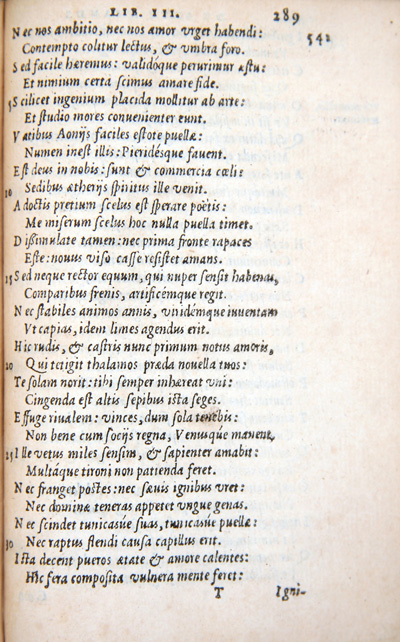 LIB. III.
289
542
Nec nos ambitio, nec nos amor vrget habendi:
Contempto colitur lectus, & vmbra foro.
Sed facile hæremus: validóque perurimur æstu:
Et nimium certa scimus amare fide.
5 Scilicet ingenium placida mollitur ab arte:
Et studio mores conuenienter eunt.
Vatibus Aonijs faciles estote puellæ:
Numen inest illis: Pieridésque fauent.
Est deus in nobis: sunt & commercia cæli:
10 Sedibus ætherijs spiritus ille venit.
A doctis pretium scelus est sperare poëtis:
Me miserum scelus hoc nulla puella timet.
Dissimulate tamen: nec prima fronte rapaces
Este: nouus viso casse resistet amans.
15 Sed neque rector equum, qui nuper sensit habenas,
Comparibus frenis, artificémque regit.
Nec stabiles animos annis, viridémque iuuentam
Vt capias, idem limes agendus erit.
Hic rudis, & castris nunc primum notus amoris,
20 Qui tetigit thalamos præda nouella tuos:
Te solam norit: tibi semper inhæreat vni:
Cingenda est altis sepibus ista seges.
Effuge riualem: vinces, dum sola tenebis:
Non bene cum socijs regna, Venusque manent.
25 Ille vetus miles sensim, & sapienter amabit:
Multáque tironi non patienda feret.
Nec franget postes: nec sæuis ignibus vret:
Nec dominæ teneras appetet vngue genas.
Nec scindet tunicasúe suas, tunicasúe puellæ:
30 Nec raptus flendi causa capillus erit.
Ista decent pueros ætate & amore calentes:
Hic fera composita vulnera mente feret:
T
Igni-